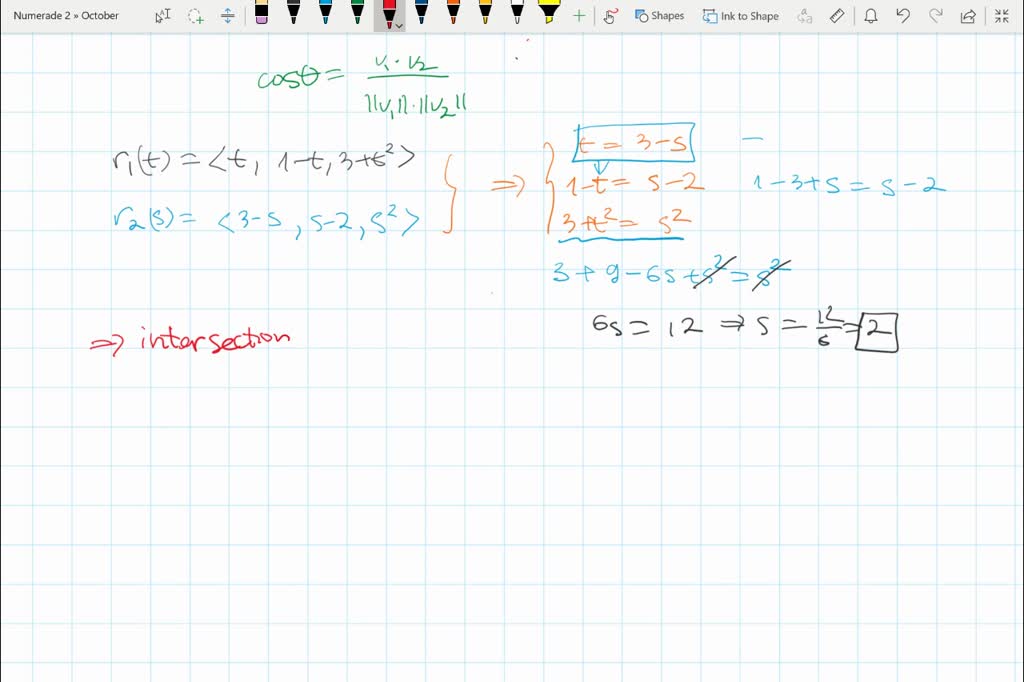 Numerade 2 » October Shapes Ink to Shape
cosθ = v₁ · v₂ / ||v₁|| · ||v₂||
r₁(t) = <t, 1-t, 3+t²>
r₂(s) = <3-s, s-2, s²>
⇒
t = 3-s —
1-t = s-2 1-3+s = s-2
3+t² = s²
3+9-6s+s² = s²
6s = 12 ⇒ s = 12/6 = 2
⇒ intersection